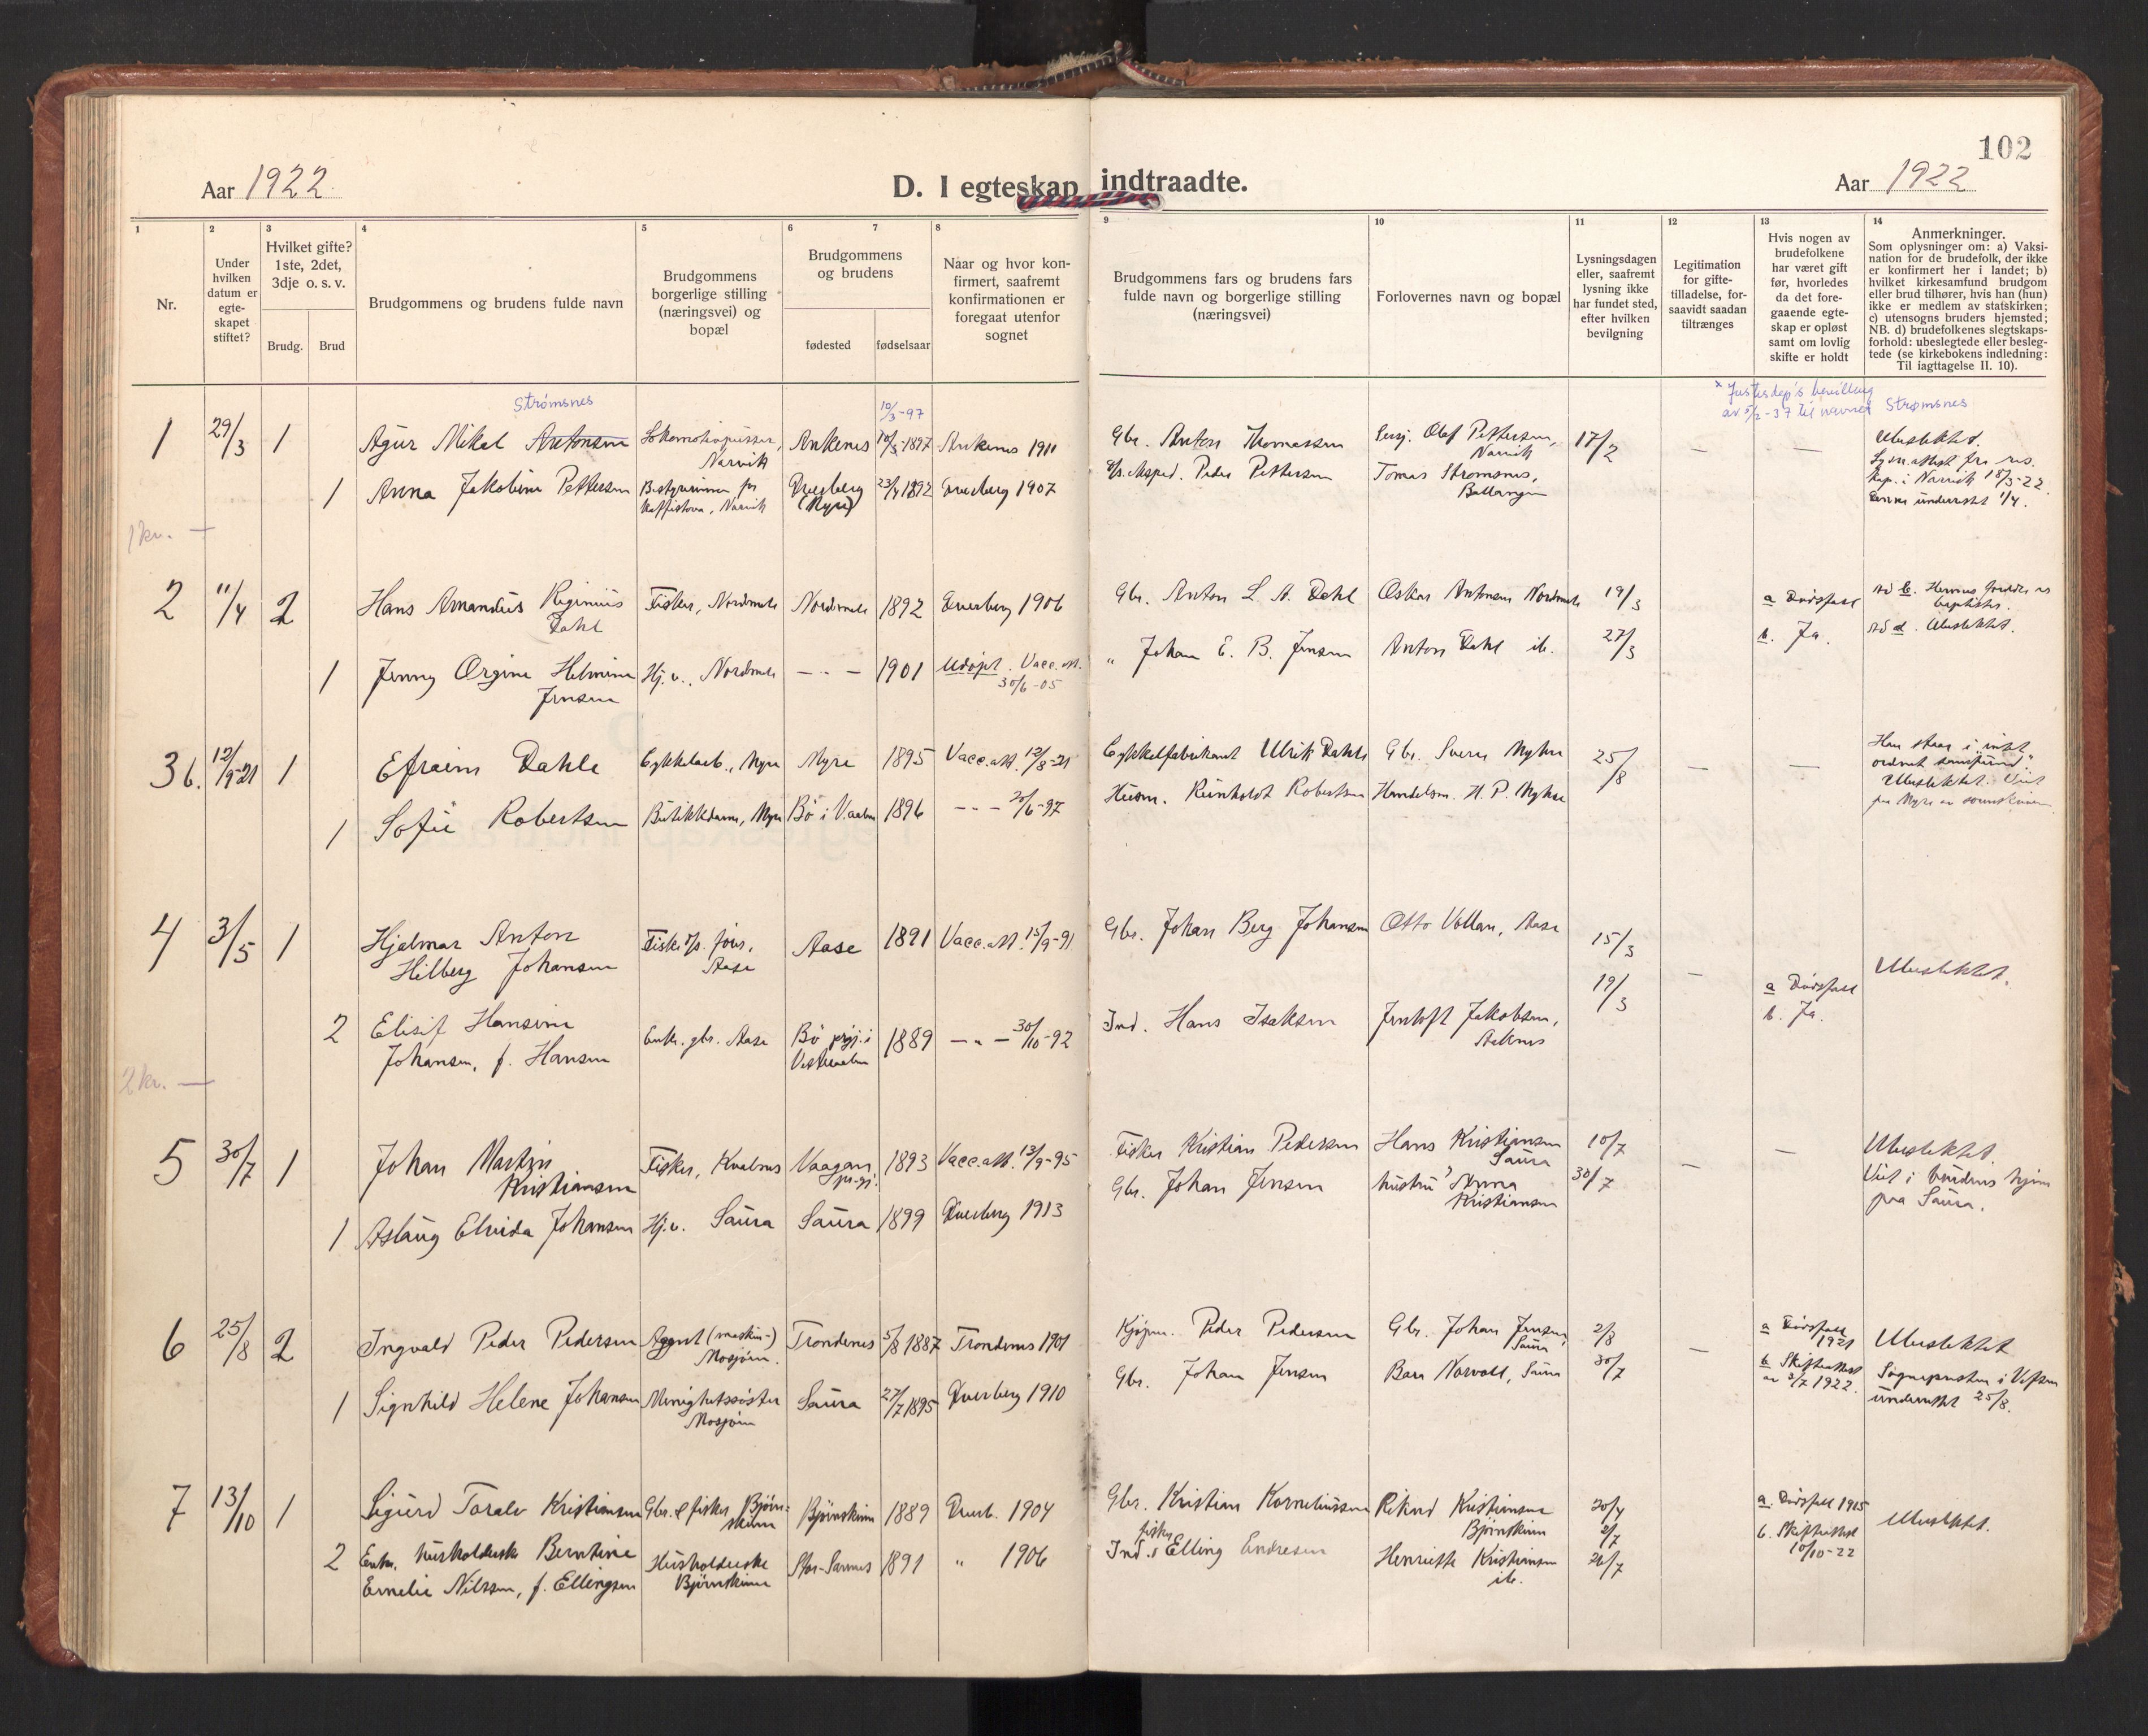 102
Aar 1922
D. I egteskap indtraadte.
Aar 1922
1
2
3
4
5
6
7
8
9
10
11
12
13
14
Nr.
Under
hvilken
datum er
egte-
skapet
stiftet?
Hvilket gifte?
1ste, 2det,
3dje o. s. v.
Brudg.
Brud
Brudgommens og brudens fulde navn
Brudgommens
borgerlige stilling
(næringsvei) og
bopæl
Brudgommens
og brudens
fødested
fødselsaar
Naar og hvor kon-
firmert, saafremt
konfirmationen er
foregaat utenfor
sognet
Brudgommens fars og brudens fars
fulde navn og borgerlige stilling
(næringsvei)
Forlovernes navn og bopæl
Lysningsdagen
eller, saafremt
lysning ikke
har fundet sted,
efter hvilken
bevilgning
Legitimation
for gifte-
tilladelse, for-
saavidt saadan
tiltrænges
Hvis nogen av
brudefolkene
har været gift
før, hvorledes
da det fore-
gaaende egte-
skap er opløst
samt om lovlig
skifte er holdt
Anmerkninger.
Som oplysninger om: a) Vaksi-
nation for de brudefolk, der ikke
er konfirmert her i landet; b)
hvilket kirkesamfund brudgom
eller brud tilhører, hvis han (hun)
ikke er medlem av statskirken;
c) utensogns bruders hjemsted;
NB. d) brudefolkenes slegtskaps-
forhold: ubeslegtede eller besleg-
tede (se kirkebokens indledning:
Til iagttagelse II. 10).
Strømsnes
10/3-97
x Justisdep's bevilling
av 5/2-37 til navnet Strømsnes
1
29/3
1
Agur Mikal Antonsen
Lokomotivpusser,
Narvik
Ankenes
10/3-1897
Ankenes 1911
Gbr. Anton Thomassen
Olaf Pettersen,
Narvik
17/2
—
—
Ubeslektet.
1
Anna Jakobine Pettersen
Bestyrerinne for
Kaffistova, Narvik
Dverberg
(Myre)
23/4 1892
Dverberg 1907
Peder Pettersen
Tomas Strømsnes,
Ballangen
Lysn.attest fra res.
kap. i Narvik 18/3-22.
Denne underrettet 1/4.
1 kr. —
2
11/4
2
Hans Amandus Reginius
Dahl
Fisker, Nordmela
Nordmela
1892
Dverberg 1906
Gbr. Anton L. A. Dahl
Oskar Antonsen Nordmela
19/3
a Dødsfall
b. Ja.
Ad b. Hennes foreldre er
baptister.
Ad d. Ubeslektet.
1
Jenny Orgine Helmine
Jensen
Hj.v., Nordmela
— " —
1901
Udøpt. Vacc.att.
30/6-05
" Johan E. B. Jensen
Anton Dahl ib.
27/3
3 b.
12/9-21
1
Efraim Dahle
Cykkelarb., Myre
Myre
1895
Vacc.att. 12/8-21
Cykkelfabrikant Ulrik Dahle
Gbr. Sverre Myhre
25/8
—
—
Han staar i "intet
ordnet samfund".
Ubeslektet. Viet
paa Myre av
1
Sofie Robertsen
Butikkdame, Myre
Bø i V.aalen
1896
— " — 20/6-97
Husm. Reinholdt Robertsen
Handelsm. H. P. Myhre
4
3/5
1
Hjalmar Anton
Hilberg Johansen
Aase
Aase
1891
Vacc.att. 15/9-91
Gbr. Johan Berg Johansen
Otto Vollan, Aase
15/3
—
Ubeslektet.
2
Elisif Hansine
Johansen, f. Hansen
Enke. gbr. Aase
Bø prgj. i
Vesteraalen
1889
— " — 30/10-92
Ind. Hans Isaksen
Jentoft Jakobsen,
19/3
a Dødsfall
b. Ja.
2 kr. —
5
30/7
1
Johan Martin
Kristiansen
Fisker, Kvalnes
Vaagan
pr.gj.
1893
Vacc.att. 13/9-95
Fisker Kristian Pedersen
Hans Kristiansen
Saura
10/7
—
—
Ubeslektet.
Viet i brudens hjem
paa Saura.
1
Aslaug Elvida Johansen
Hj.v. Saura
Saura
1899
Dverberg 1913
Gbr. Johan Jensen
hustru Anna
Kristiansen
30/7
6
25/8
2
Ingvald Peder Pedersen
Agent (maskin-)
Mosjøen.
Trondenes
5/8 1887
Trondenes 1901
Kjøpm. Peder Pedersen
Gbr. Johan Jensen,
Saura
2/8
—
a Dødsfall
1921
b Skifteattest
av 3/7 1922.
Ubeslektet
Sognepresten i Vefsen
underrettet 25/8.
1
Signhild Helene Johansen
Menighetssøster
Mosjøen
Saura
27/7 1895
Dverberg 1910
Gbr. Johan Jensen
Saura
30/7
7
13/10
1
Sigurd Toralv Kristiansen
Gbr. & fisker Bjørn-
skinn
Bjørnskinn
1889
Dverb. 1904
Gbr. Kristian Korneliussen
Rikard Kristiansen
Bjørnskinn
30/4
2/7
a. Dødsfall 1915
b. Skifteattest
10/10-22
Ubeslektet.
2
Enke. husholderske Berntine
Emelie Nilssen, f. Ellingsen
Husholderske
Bjørnskinn
1891
" 1906
Ind. & fisker Elling Endresen
Henriette Kristiansen
ib.
26/7